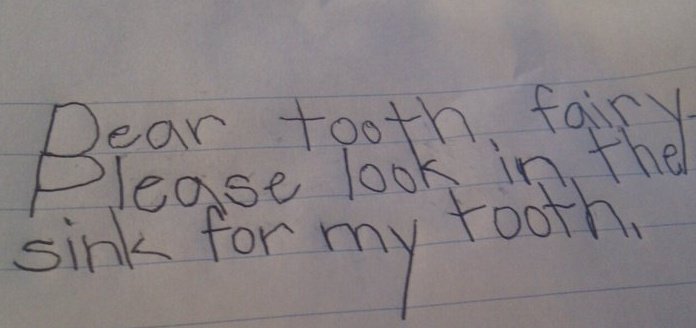 Dear tooth fairy-
Please look in the
sink for my tooth.